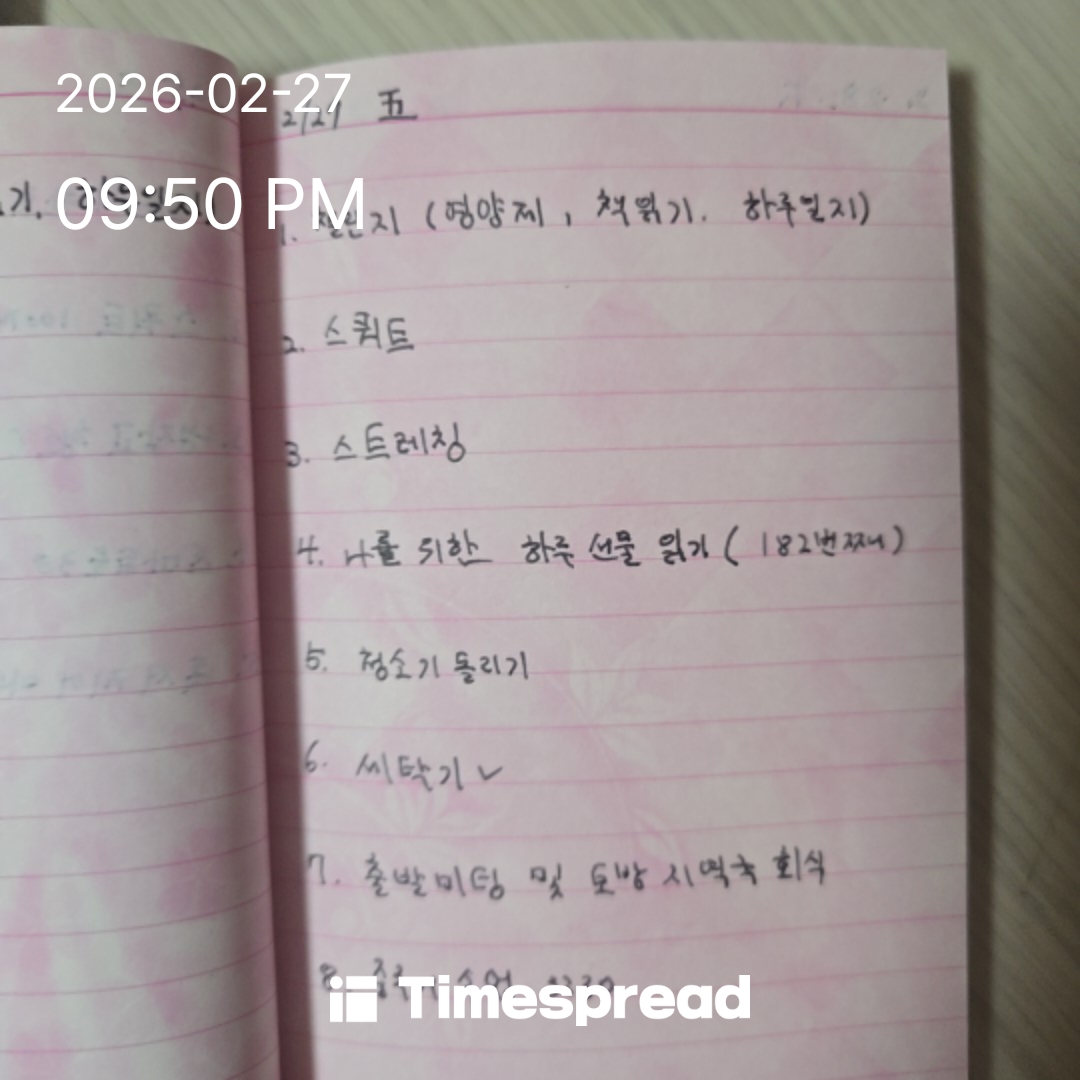 2026-02-27
2/27 五
09:50 PM
1. 지 (영양제, 책읽기. 하루일지)
2. 스쿼트
3. 스트레칭
4. 나를 위한 하루 선물 읽기 (182번째)
5. 청소기 돌리기
6. 씨탁기 ✓
7. 출발미팅 및 토방 지역국 회식
8.
Timespread